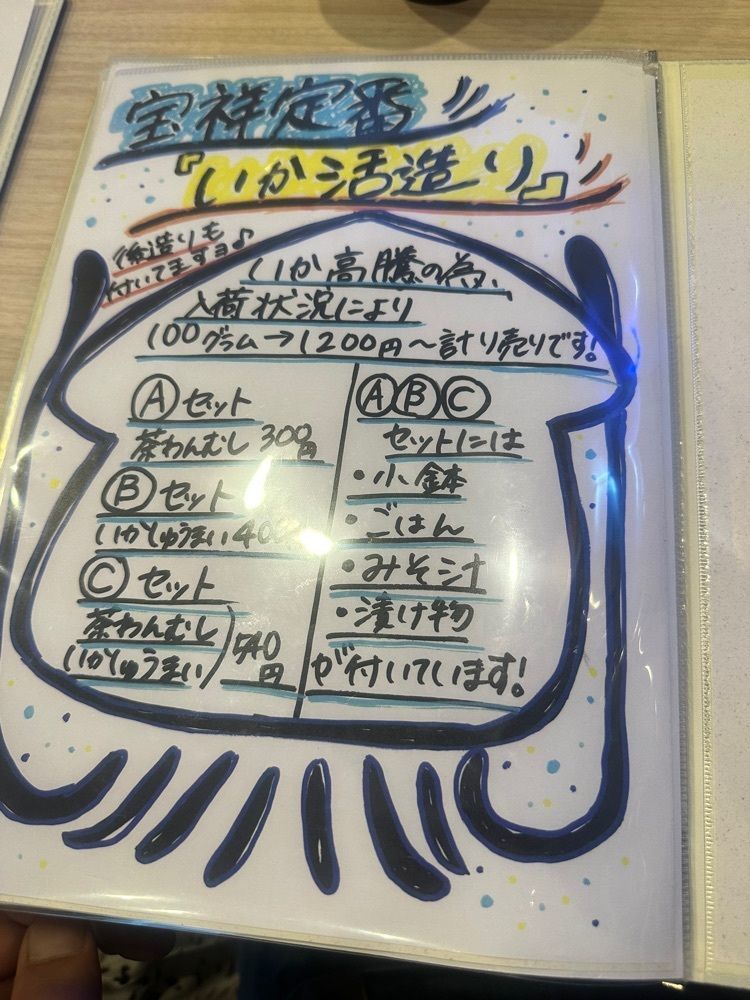 宝祥定番
『いか活造り』
後造りも
付いてますヨ♪
いか高騰の為、
入荷状況により
100グラム→1200円〜計り売りです!
Ⓐセット
茶わんむし 300円
Ⓑセット
いかしゅうまい
Ⓒセット
茶わんむし
いかしゅうまい) 540円
ⒶⒷⒸ
セットには
・小鉢
・ごはん
・みそ汁
・漬け物
が付いています!